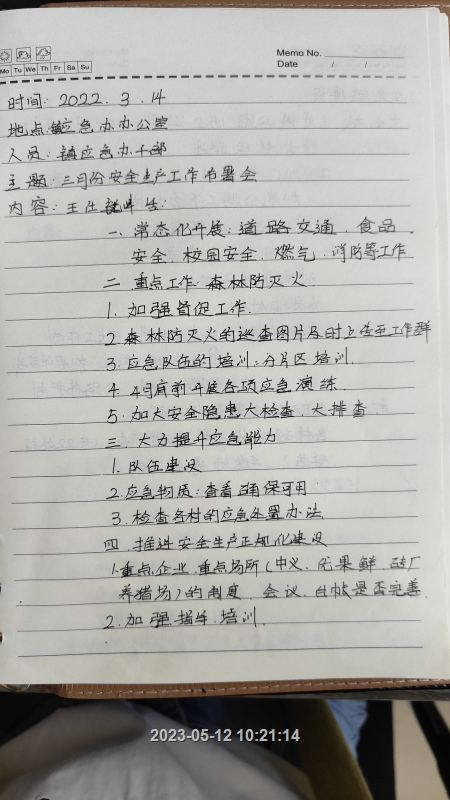 Memo No.
Mo Tu We Th Fr Sa Su
Date / /
时间: 2022.3.14
地点: 镇应急办办公室
人员: 镇应急办干部
主题: 三月份安全生产工作布署会
内容: 王仕
一 常态化开展: 道路交通、食品
安全、校园安全、燃气、消防等工作
二 重点工作 森林防灭火
1. 加强督促工作.
2. 森林防灭火的巡查图片及时上传至工作群
3. 应急队伍的培训: 分片区培训.
4. 4月底前开展各项应急演练.
5. 加大安全隐患大检查 大排查
三 大力提升应急能力
1. 队伍建设
2. 应急物质: 查看 确保可用
3. 检查各村的应急处置办法
四 推进安全生产正规化建设
1. 重点企业 重点场所 (中义、优果鲜 砖厂
养猪场) 的制度 会议、台帐是否完善.
2. 加强指导 培训.
2023-05-12 10:21:14